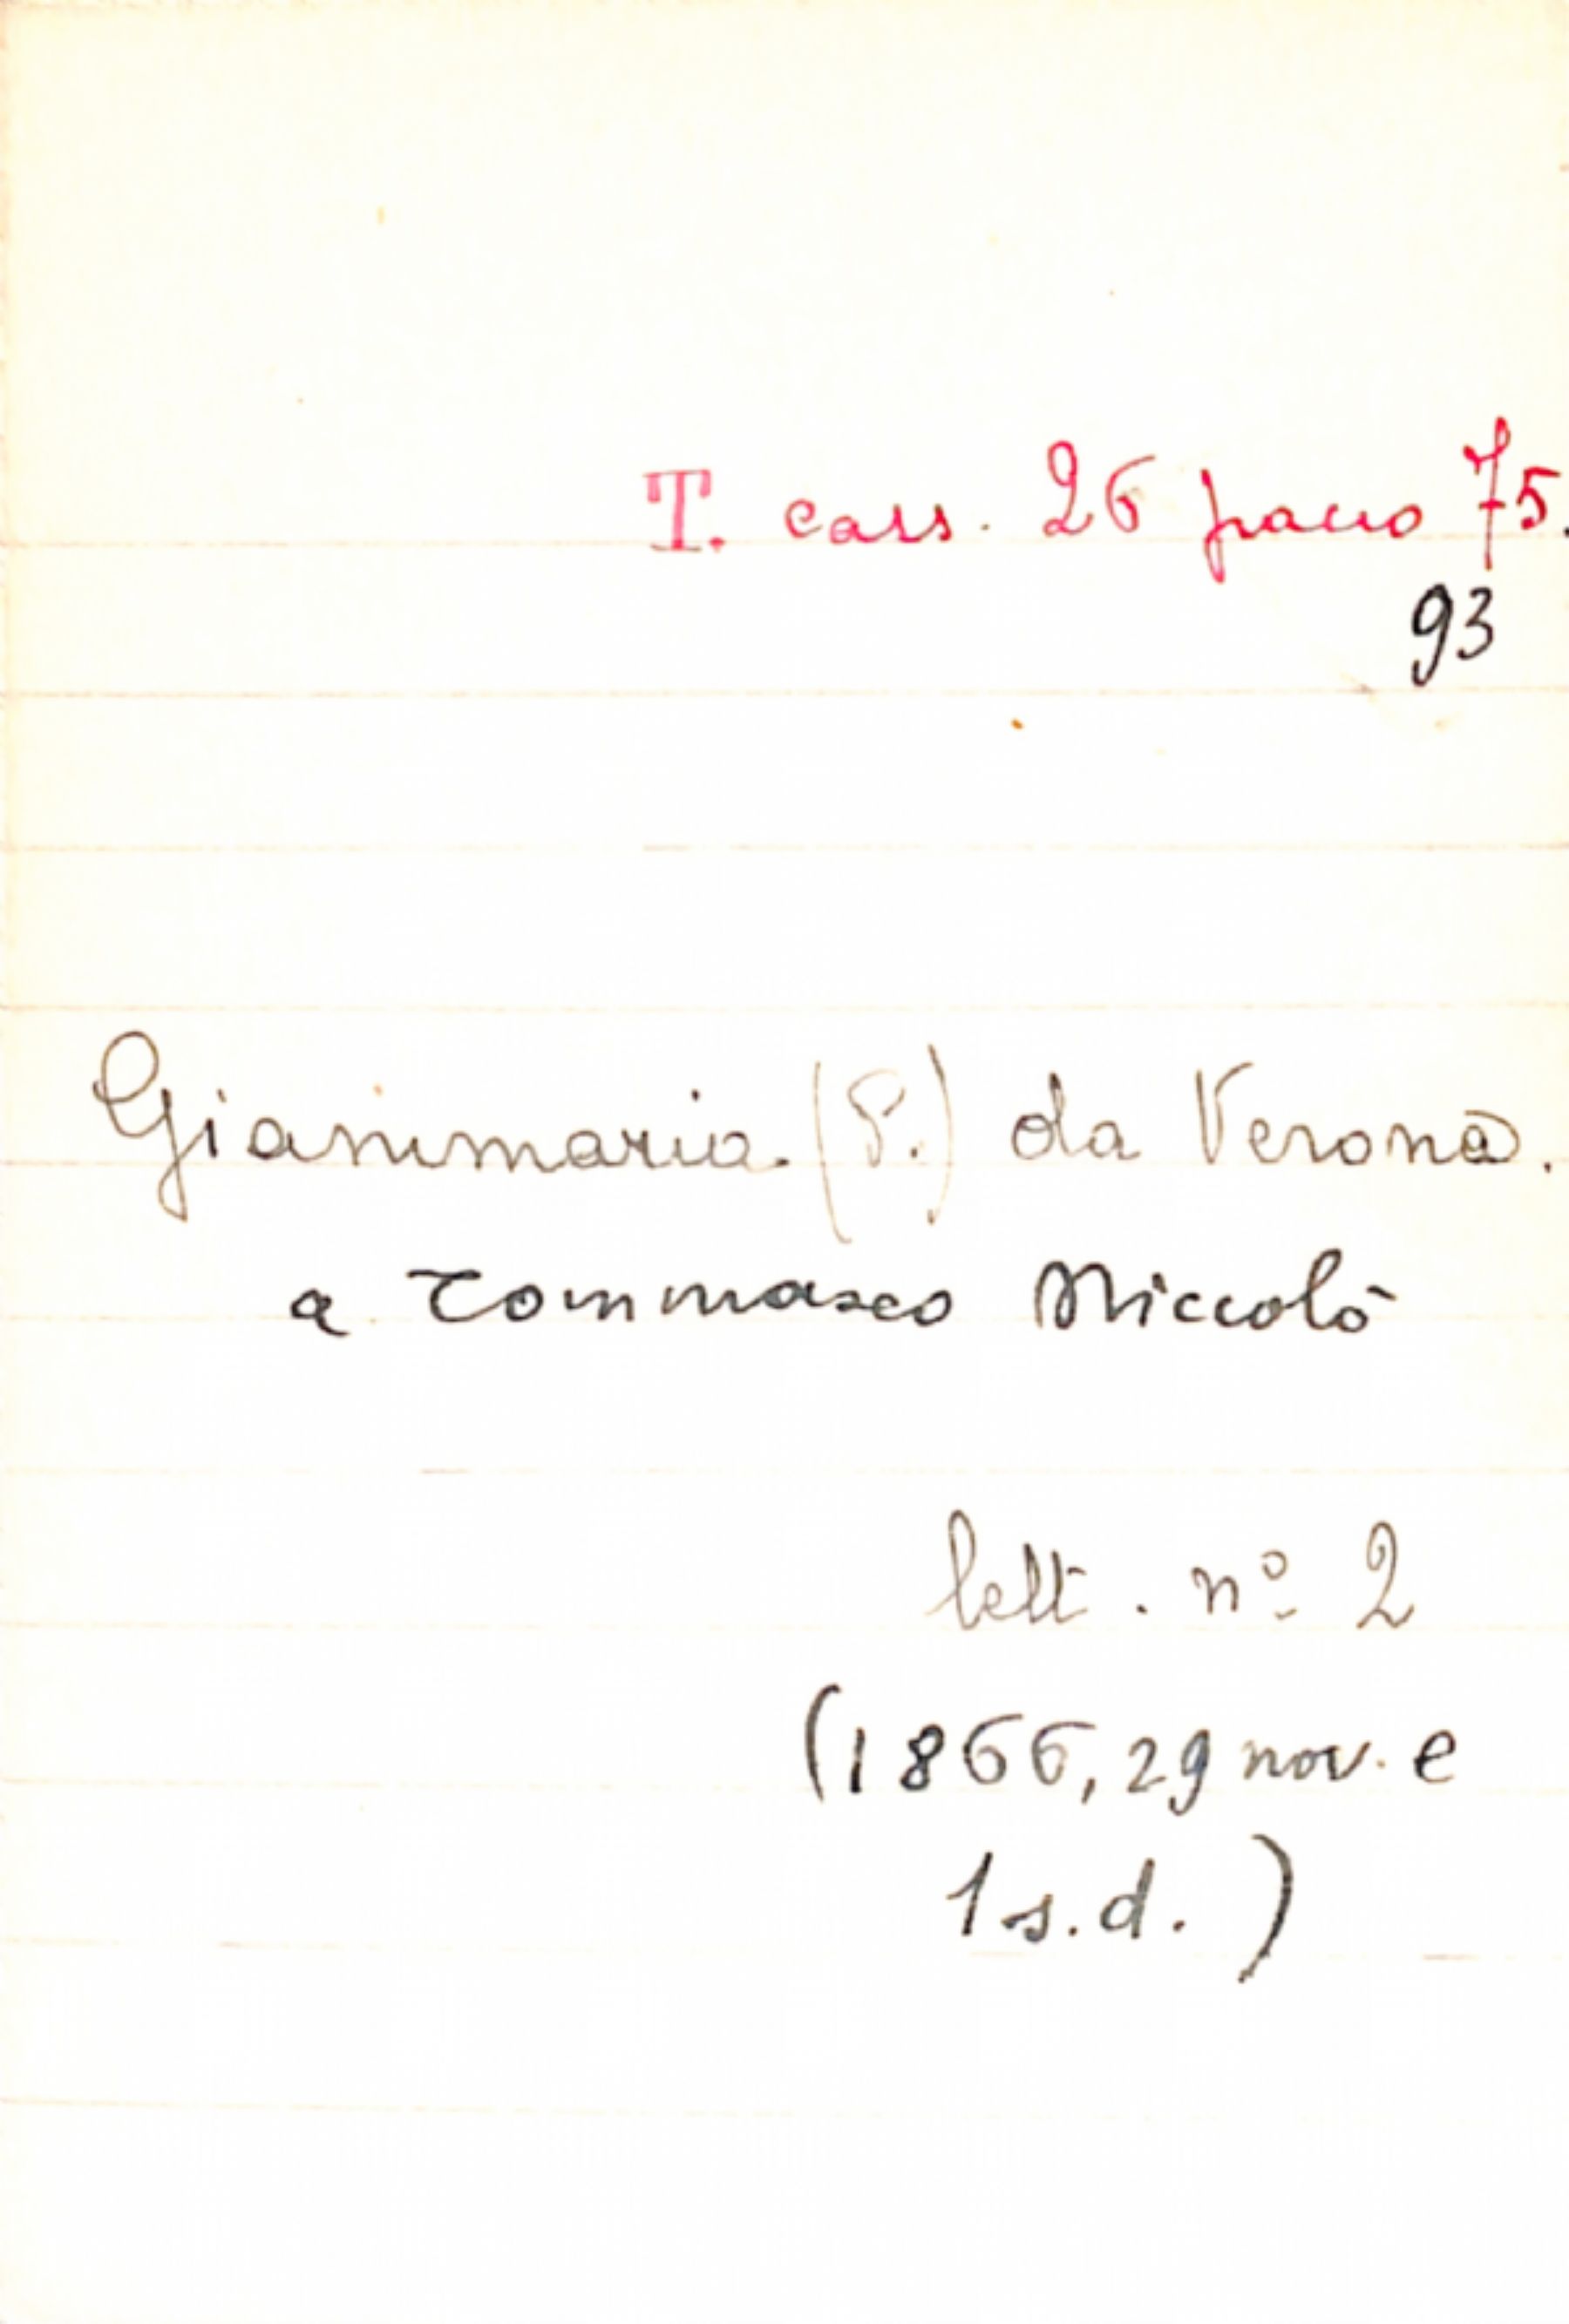 T. cass. 26 pacco 75.
93
Gianmaria (P.) da Verona.
a Tommaseo Niccolò
lett. nº 2
(1866, 29 nov. e
1 s.d.)